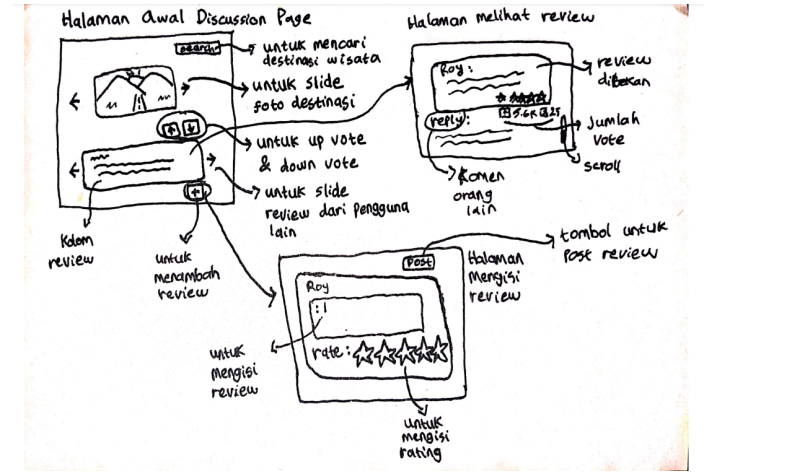 Halaman awal Discussion Page
search
untuk mencari
destinasi wisata
untuk slide
foto destinasi
untuk up vote
& down vote
untuk slide
review dari pengguna
lain
Kolom
review
untuk
menambah
review
Halaman melihat review
Roy:
review
diberikan
reply:
5.6k 25
Jumlah
Vote
scroll
Komen
orang
lain
Post
tombol untuk
Post review
Halaman
Mengisi
review
Roy
:|
rate:
untuk
mengisi
review
untuk
mengisi
rating